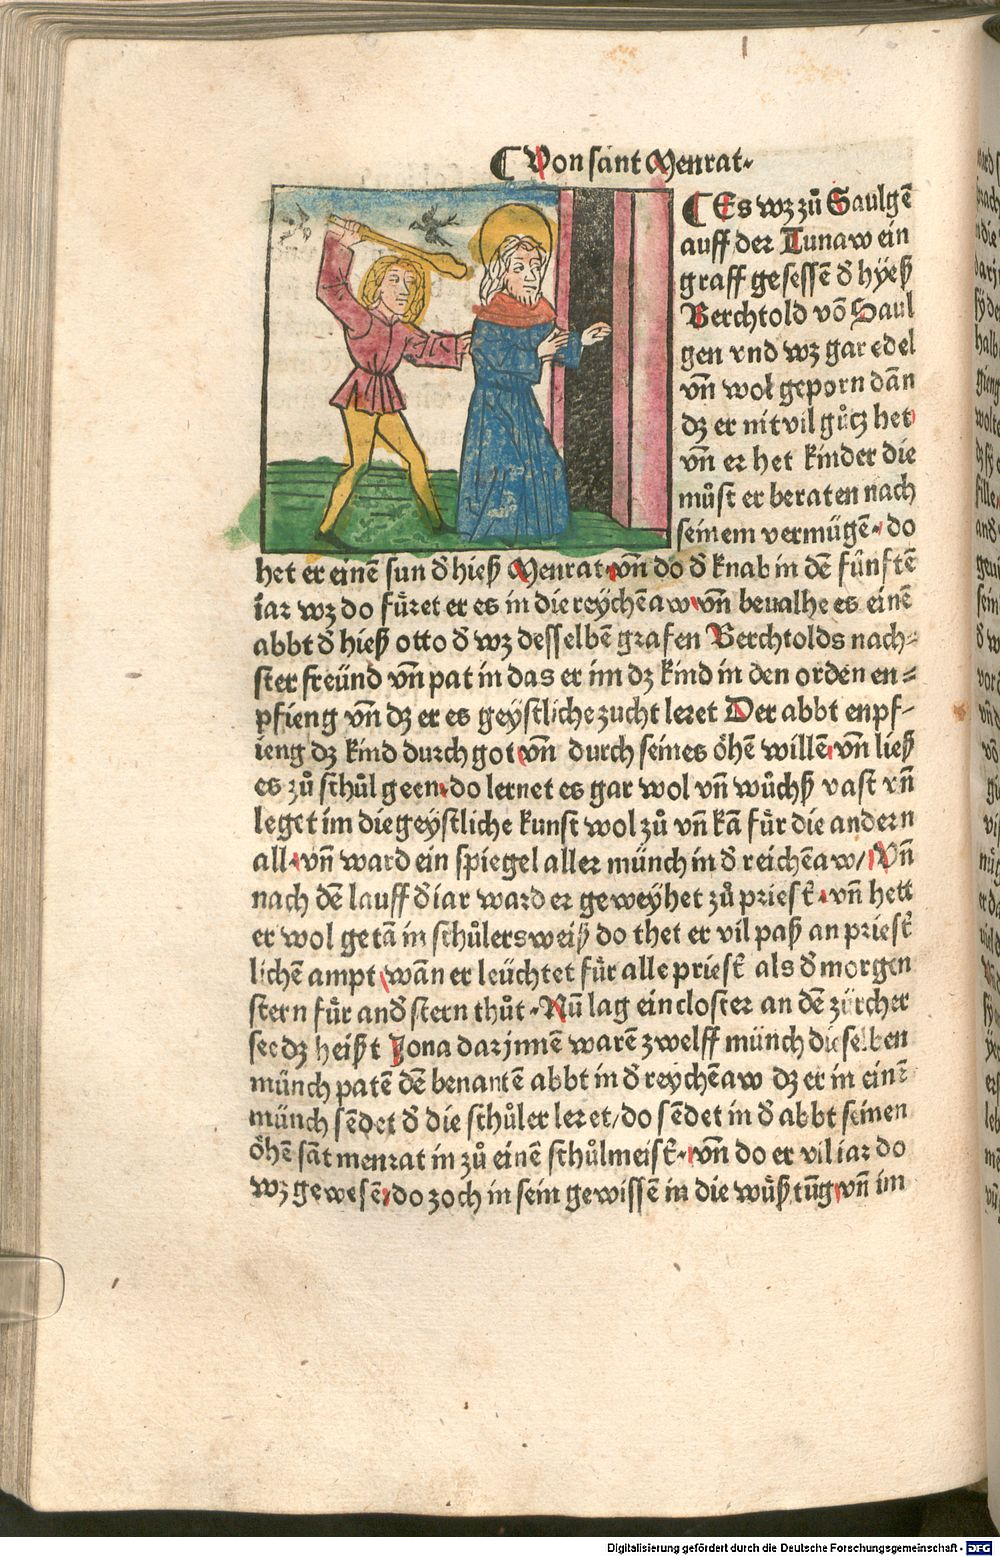 Von sant Menrat.
Es wz zů Saulgē
auff der Tunaw ein
graff gesessē d hÿeß
Berchtold vō Saul
gen vnd wz gar edel
vñ wol geporn dān
dz er nit vil gůtz het
vñ er het kinder die
můst er beraten nach
seinem vermügē. do
het er einē sun d hieß Menrat. vñ do d knab in dē fünftē
iar wz do fůret er es in die reÿchēaw vñ beualhe es einē
abbt d hieß otto d wz desselbē grafen Berchtolds nach=
ster freünd vñ pat in das er im dz kind in den orden en=
pfieng vñ dz er es geÿstliche zucht leret Der abbt enpf=
ieng dz kind durch got vñ durch seines öhen willē vñ ließ
es zů schůl geen. do lernet es gar wol vñ wůchß vast vñ
leget im die geÿstliche kunst wol zů vñ kā fůr die andern
all. vñ ward ein spiegel aller münch in d reichēaw/ Vñ
nach dē lauff d iar ward er geweÿhet zů priest. vñ hett
er wol getā in schůlers weiß do thet er vil paß an priest
lichē ampt wān er leüchtet für alle priest als d morgen
stern fůr and stern thůt. Nū lag ein closter an dē zürcher
see dz heißt Jona darjnnē warē zwelff münch dieselben
münch patē dē benantē abbt in d reÿchēaw dz er in einē
münch sēdet d die schůler leret/ do sēdet in d abbt seinen
öhē sāt menrat in zů einē schůlmeist. vñ do er vil iar do
wz gewesē do zoch in sein gewissē in die wůßtūg vñ im
Digitalisierung gefördert durch die Deutsche Forschungsgemeinschaft - DFG